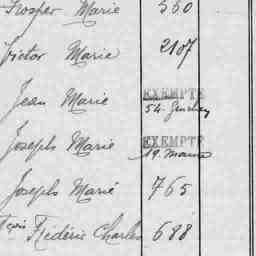 Prosper Marie 560
Victor Marie 2107
Jean Marie EXEMPTÉ
54
Joseph Marie EXEMPTÉ
19.
Joseph Marie 765
Frédéric Charles 688